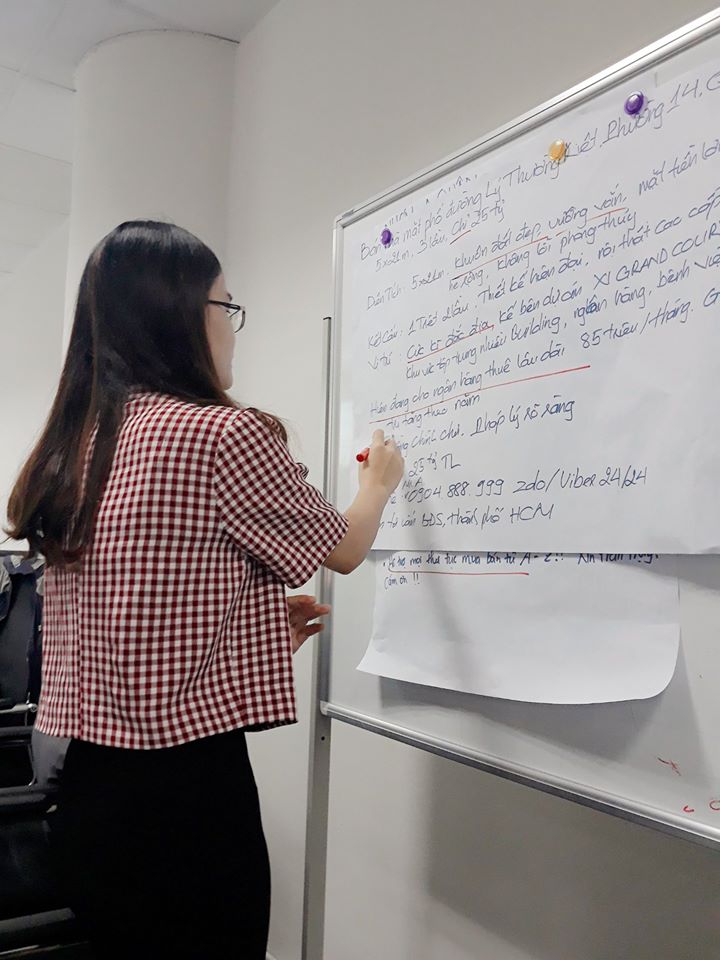 Bán nhà mặt phố đường Lý Thường Kiệt. Phường 14, Q
5x21m, 3 lầu, Chỉ 25 tỷ
Diện Tích: 5x21m. Khuôn đất đẹp, vuông vắn, mặt tiền
hè rộng, không lỗi phong thủy
Kết Cấu: 1 Trệt 2 lầu. Thiết kế hiện đại, nội thất cao cấp
Vị trí: Cực kì đắc địa, kế bên dự án XI GRAND COURT
Khu vực tập trung nhiều Building, ngân hàng, bệnh viện
Hiện đang cho ngân hàng thuê lâu dài 85 triệu/tháng. G
tăng theo năm
chính chủ. Pháp lý rõ ràng
25 tỷ TL
0904.888.999 zalo/Viber 24/24
vấn BĐS, thành phố HCM
mọi thủ tục mua bán từ A-Z
Cảm ơn !!